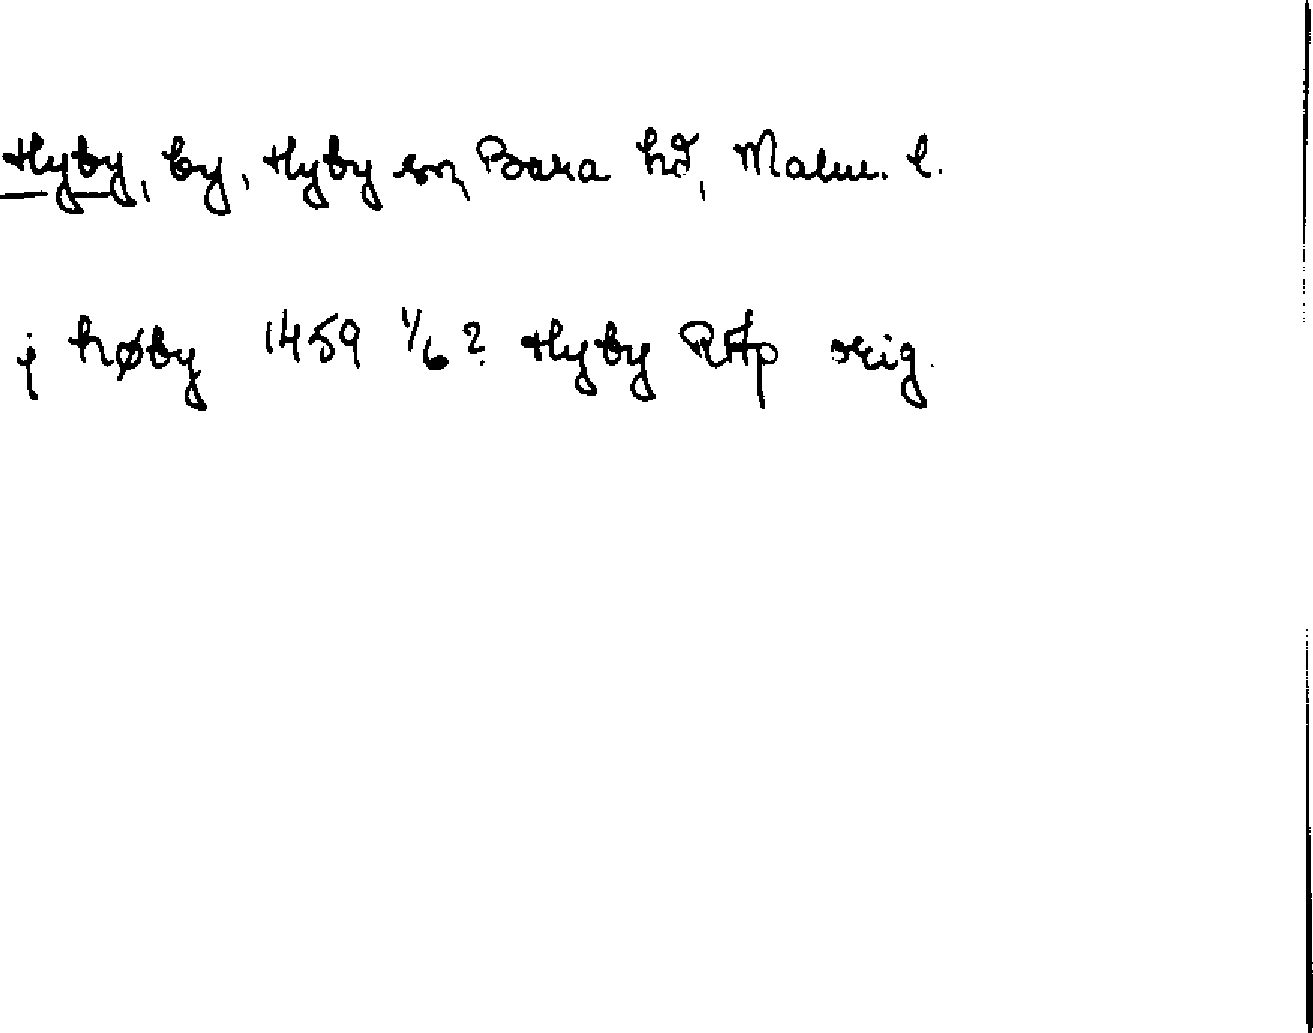 Hyby, by, Hyby sn, Bara hd, Malm. l.
j høby 1459 1/6? Hyby RAp orig.